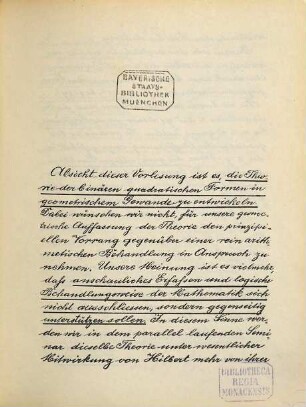 BAYERISCHE
STAATS-
BIBLIOTHEK
MUENCHEN
Absicht dieser Vorlesung ist es, die Theo-
rie der binären quadratischen Formen in
geometrischem Gewande zu entwickeln.
Dabei wünschen wir nicht, für unsere geome-
trische Auffassung der Theorie den prinzipi-
ellen Vorrang gegenüber einer rein arith-
metischen Behandlung in Anspruch zu
nehmen. Unsere Meinung ist es vielmehr,
daß anschauliches Erfassen und logische
Behandlungsweise der Mathematik sich
nicht ausschliessen, sondern gegenseitig
unterstützen sollen. In diesem Sinne wer-
den wir in dem parallel laufenden Semi-
nar dieselbe Theorie unter wesentlicher
Mitwirkung von Hilbert mehr von ihrer
BIBLIOTHECA
REGIA
MONACENSIS